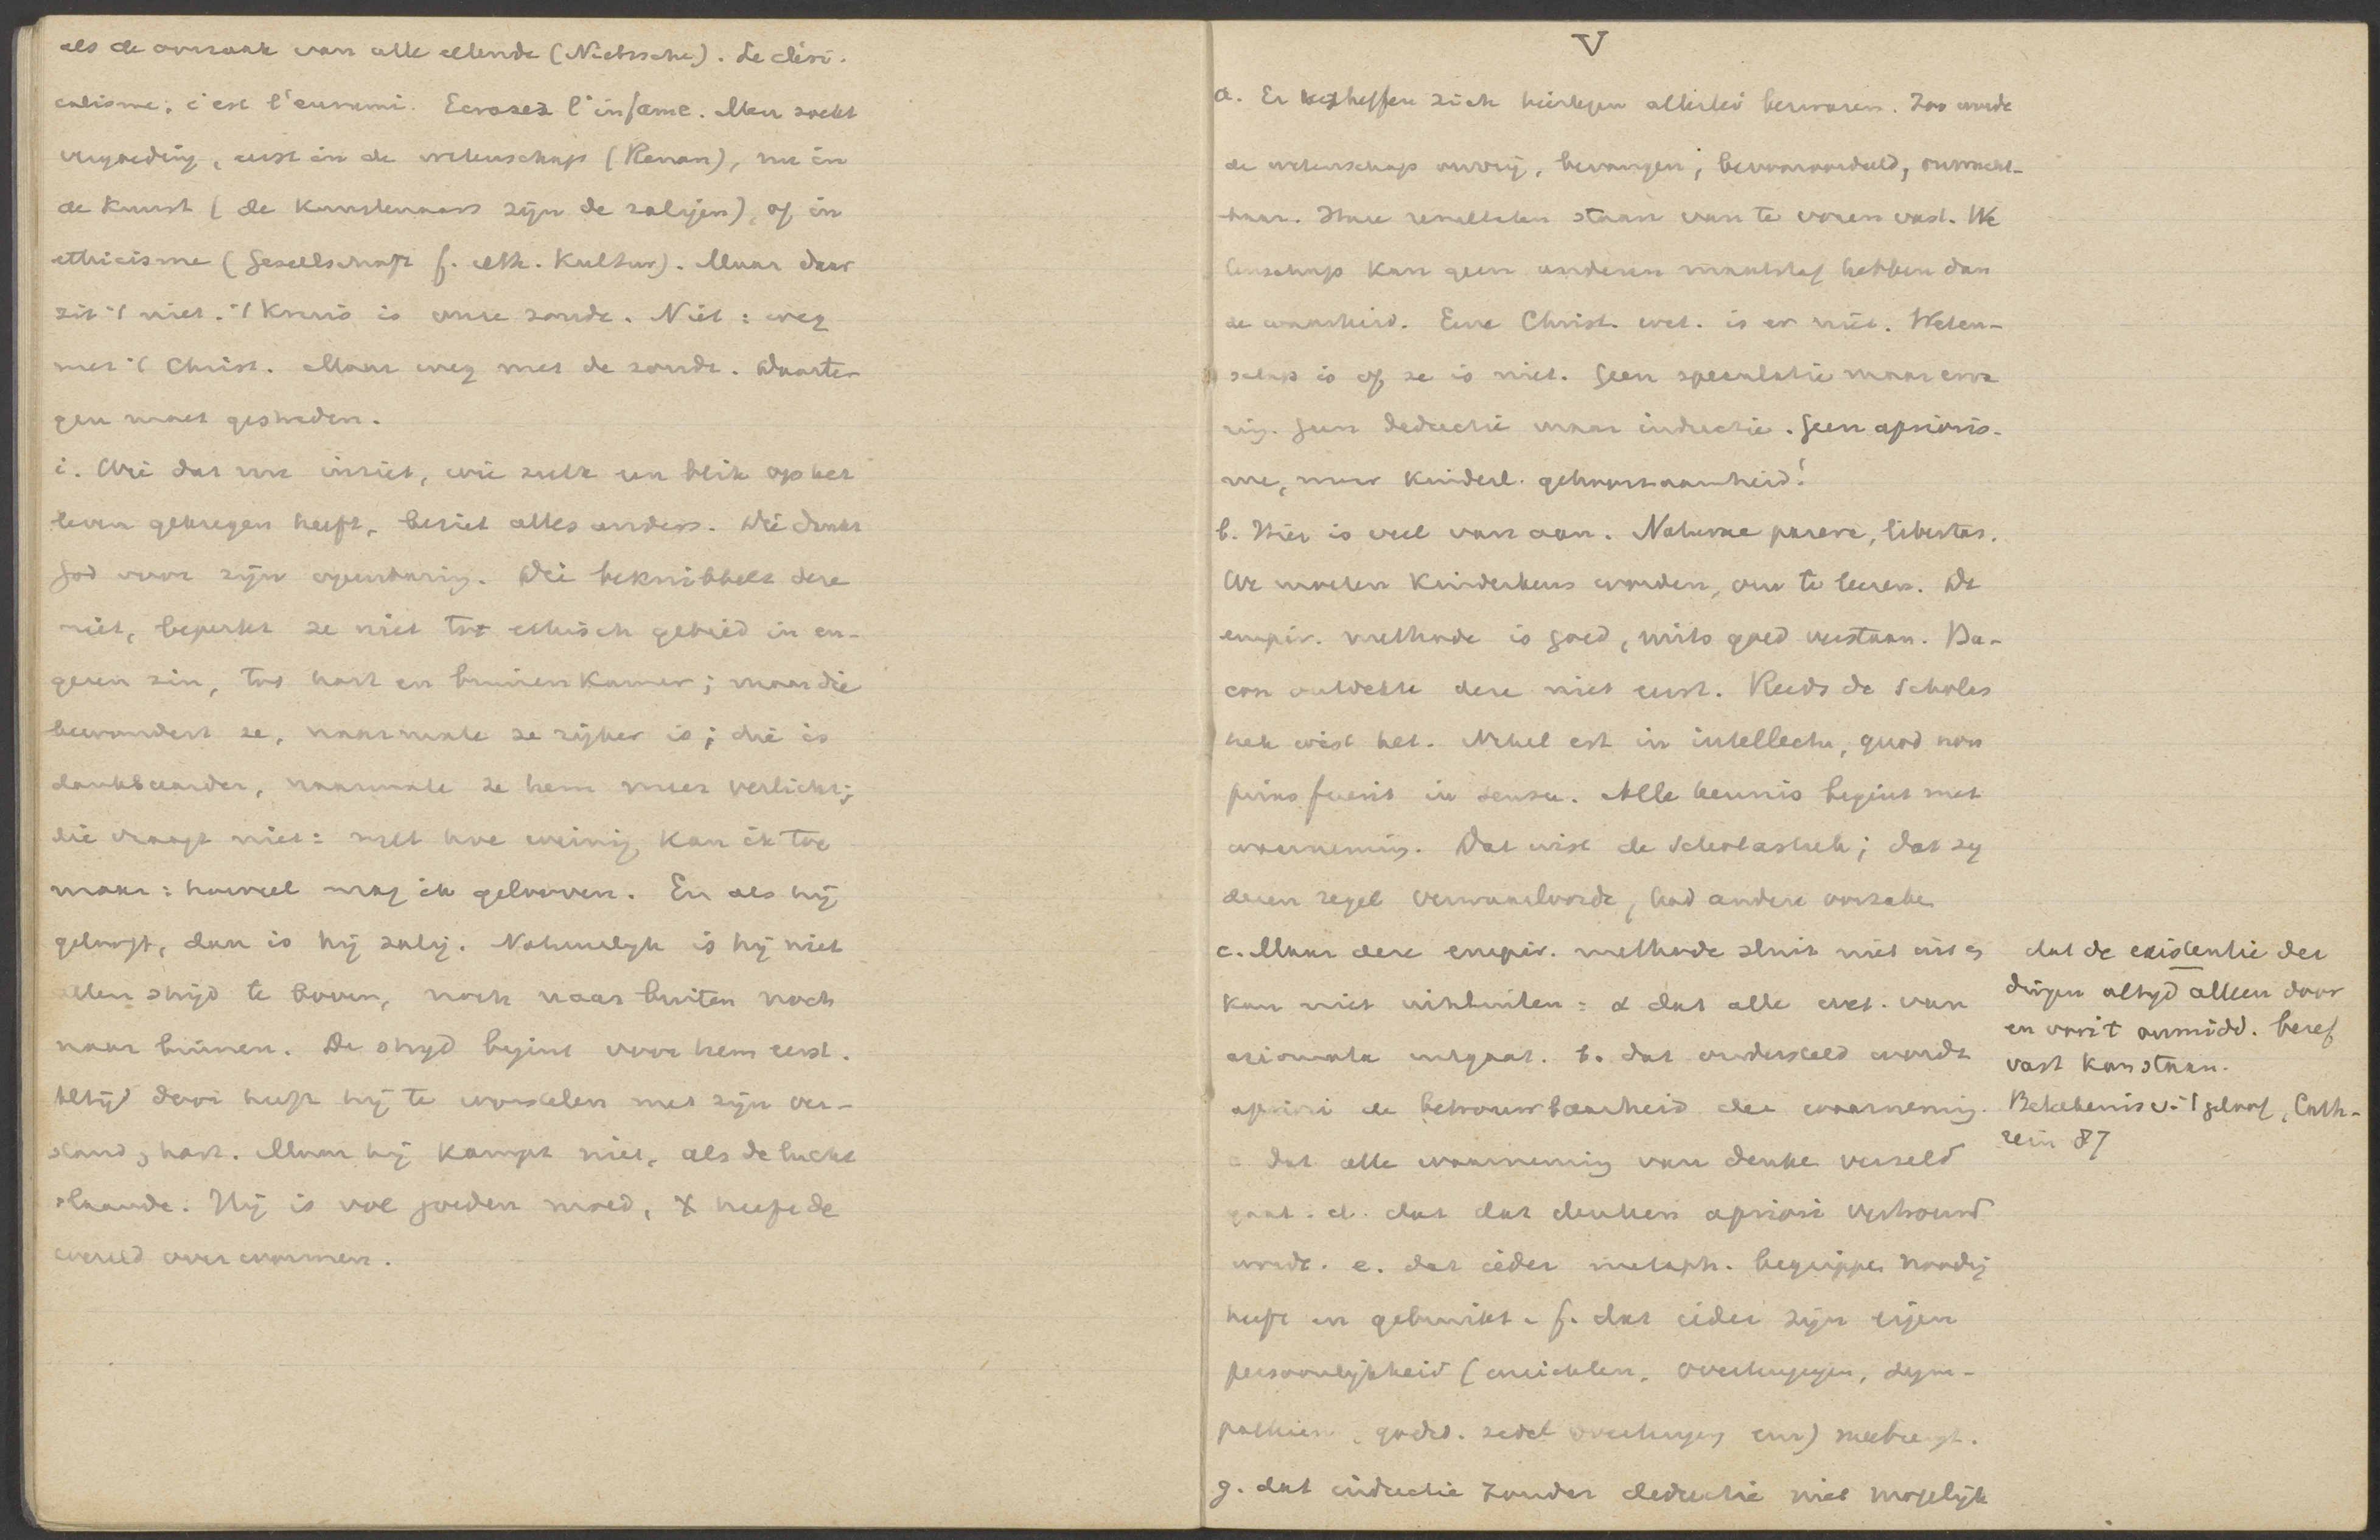 als de oorzaak van alle ellende (Nietzsche). Le cléri-
calisme, c'est l'ennemi. Ecrasez l'infame. Men zoekt
vergoeding, eerst in de wetenschap (Renan), nu in
de Kunst (de Kunstenaars zijn de zaligen), of in
ethicisme (Gesellschaft f. eth. Kultur). Maar daar
zit 't niet. 't Kruis is onze zonde. Niet: weg
met 't Christ. Maar weg met de zonde. Daarte-
gen moet gestreden.
i. Wie dat nu inziet, wie zulk een blik op het
leven gekregen heeft, beziet alles anders. Die dankt
God voor zijn openbaring. Die beknibbelt deze
niet, beperkt ze niet tot ethisch gebied in en-
geren zin, tot hart en binnenkamer; maar die
bewondert ze, naarmate ze rijker is; die is
dankbaarder, naarmate ze hem meer verlicht;
die vraagt niet: met hoe weinig kan ik toe
maar: hoeveel mag ik gelooven. En als hij
gelooft, dan is hij zalig. Natuurlijk is hij niet
allen strijd te boven, noch naar buiten noch
naar binnen. De strijd begint voor hem eerst.
Altijd door heeft hij te worstelen met zijn ver-
stand, hart. Maar hij kampt niet, als de lucht
slaande. Hij is vol goeden moed, X heeft de
wereld overwonnen.
V
a. Er verheffen zich hiertegen allerlei bezwaren. Zoo wordt
de wetenschap onvrij, bevangen, bevooroordeeld, onvrucht-
baar. Hare resultaten staan van te voren vast. We
tenschap kan geen anderen maatstaf hebben dan
de waarheid. Eene Christ. wet. is er niet. Weten-
schap is of ze is niet. Geen speculatie maar erva
ring. Geen deductie maar inductie. Geen aprioris-
me, maar kinderl. gehoorzaamheid!
b. Hier is veel van aan. Naturae parere, libertas.
We moeten kinderkens worden, om te leeren. De
empir. methode is goed, mits goed verstaan. Ba-
con ontdekte deze niet eerst. Reeds de Scholas
tiek wist het. Nihil est in intellectu, quod non
prius fuerit in sensu. Alle kennis begint met
waarneming. Dat wist de Scholastiek; dat zij
dezen regel verwaarloosde, had andere oorzaken
c. Maar deze empir. methode sluit niet uit en
kan niet uitsluiten: a dat alle wet. van
axiomata uitgaat. b. dat ondersteld wordt
apriori de betrouwbaarheid der waarneming.
c dat alle waarneming van denken verzeld
gaat. d. dat dat denken apriori vertrouwd
wordt. e. dat ieder metaph. begrippen noodig
heeft en gebruikt. f. dat ieder zijn eigen
persoonlijkheid (inzichten, overtuigingen, sym-
pathieën, godsd. zedel overtuiging enz) meebrengt.
g. dat inductie zonder deductie niet mogelijk
dat de existentie der
dingen altijd alleen door
en voor 't onmidd. besef
vast kan staan.
Beteekenis v. 't geloof, Cath-
rein 87